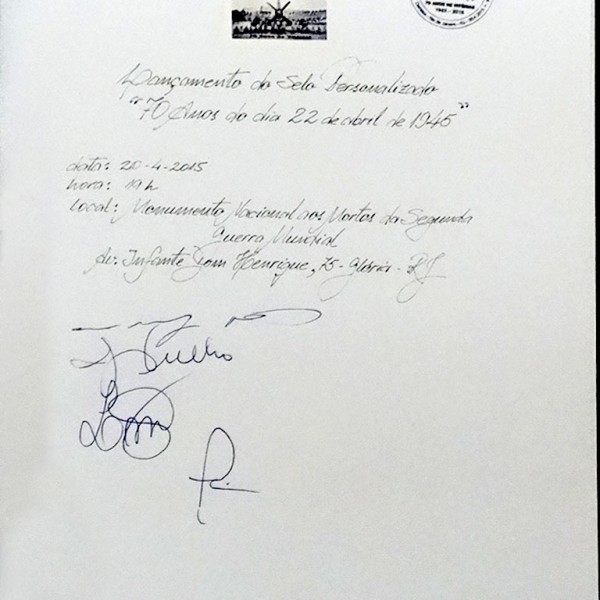 Lançamento do Selo Personalizado
"70 Anos do dia 22 de abril de 1945"
data: 20-4-2015
hora: 19 h
local: Monumento Nacional aos Mortos da Segunda
Guerra Mundial
Av: Infante Dom Henrique, 75 - Glória - RJ